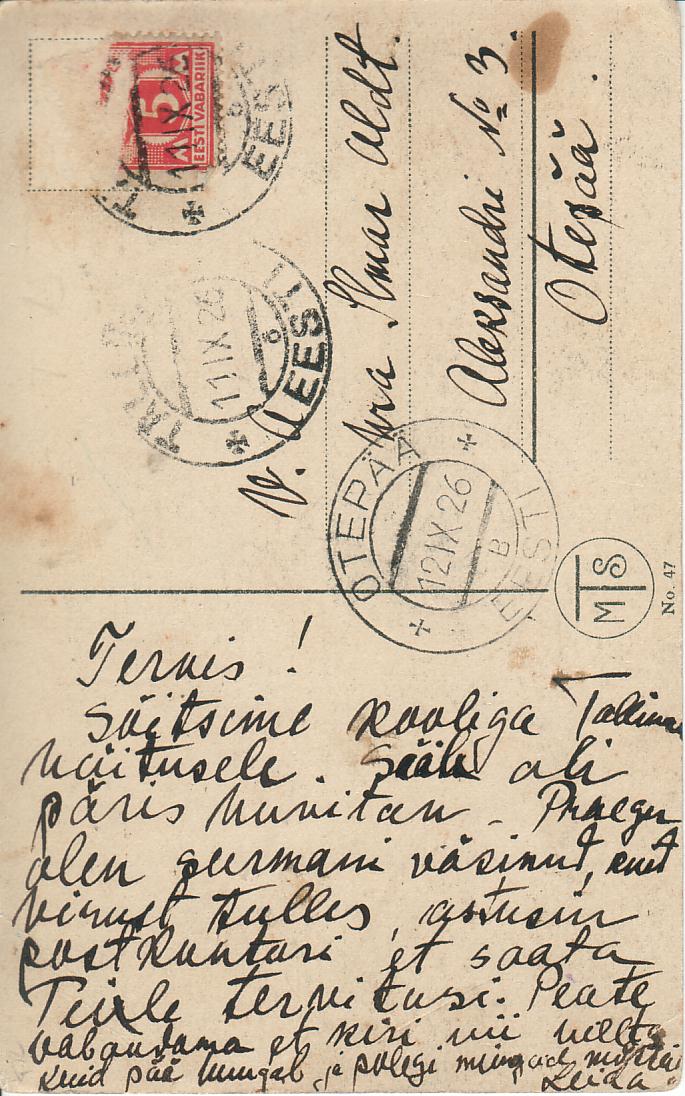 5 M
EESTI VABARIIK
11 IX 26
EESTI
TALLINN
11 IX 26
EESTI
V.
hra Ilmar Aldt.
Aleksandri № 3.
Otepää.
OTEPÄÄ
12 IX 26
B
EESTI
MTS
No. 47
Tervis!
Sõitsime kooliga Tallinna
näitusele. Sääl oli
päris huvitav. Praegu
olen surmani väsinud, ent
tulles, astusin
postkontori et saata
Teile tervitusi. Peate
vabandama et kiri nii
kuid pää ja polegi
Leida